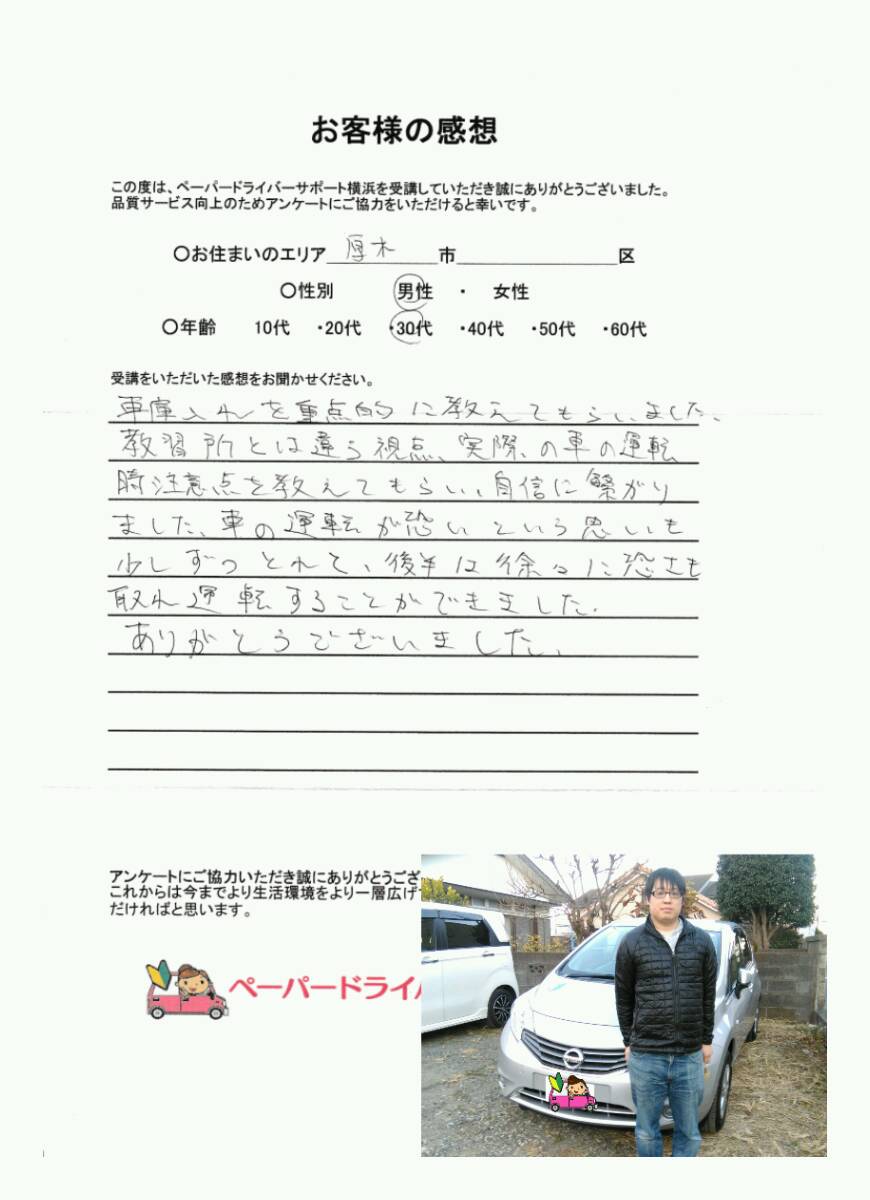 お客様の感想
この度は、ペーパードライバーサポート横浜を受講していただき誠にありがとうございました。
品質サービス向上のためアンケートにご協力をいただけると幸いです。
○お住まいのエリア 厚木 市 区
○性別 男性 ・ 女性
○年齢 10代 ・20代 ・30代 ・40代 ・50代 ・60代
受講をいただいた感想をお聞かせください。
車庫入れを重点的に教えてもらいました、
教習所とは違う視点、実際の車の運転
時注意点を教えてもらい、自信に繋がり
ました、車の運転が恐いという思いも
少しずつとれて、後半は徐々に恐さも
取れ運転することができました.
ありがとうございました、
アンケートにご協力いただき誠にありがとうござ
これからは今までより生活環境をより一層広げ
だければと思います。
ペーパードライ